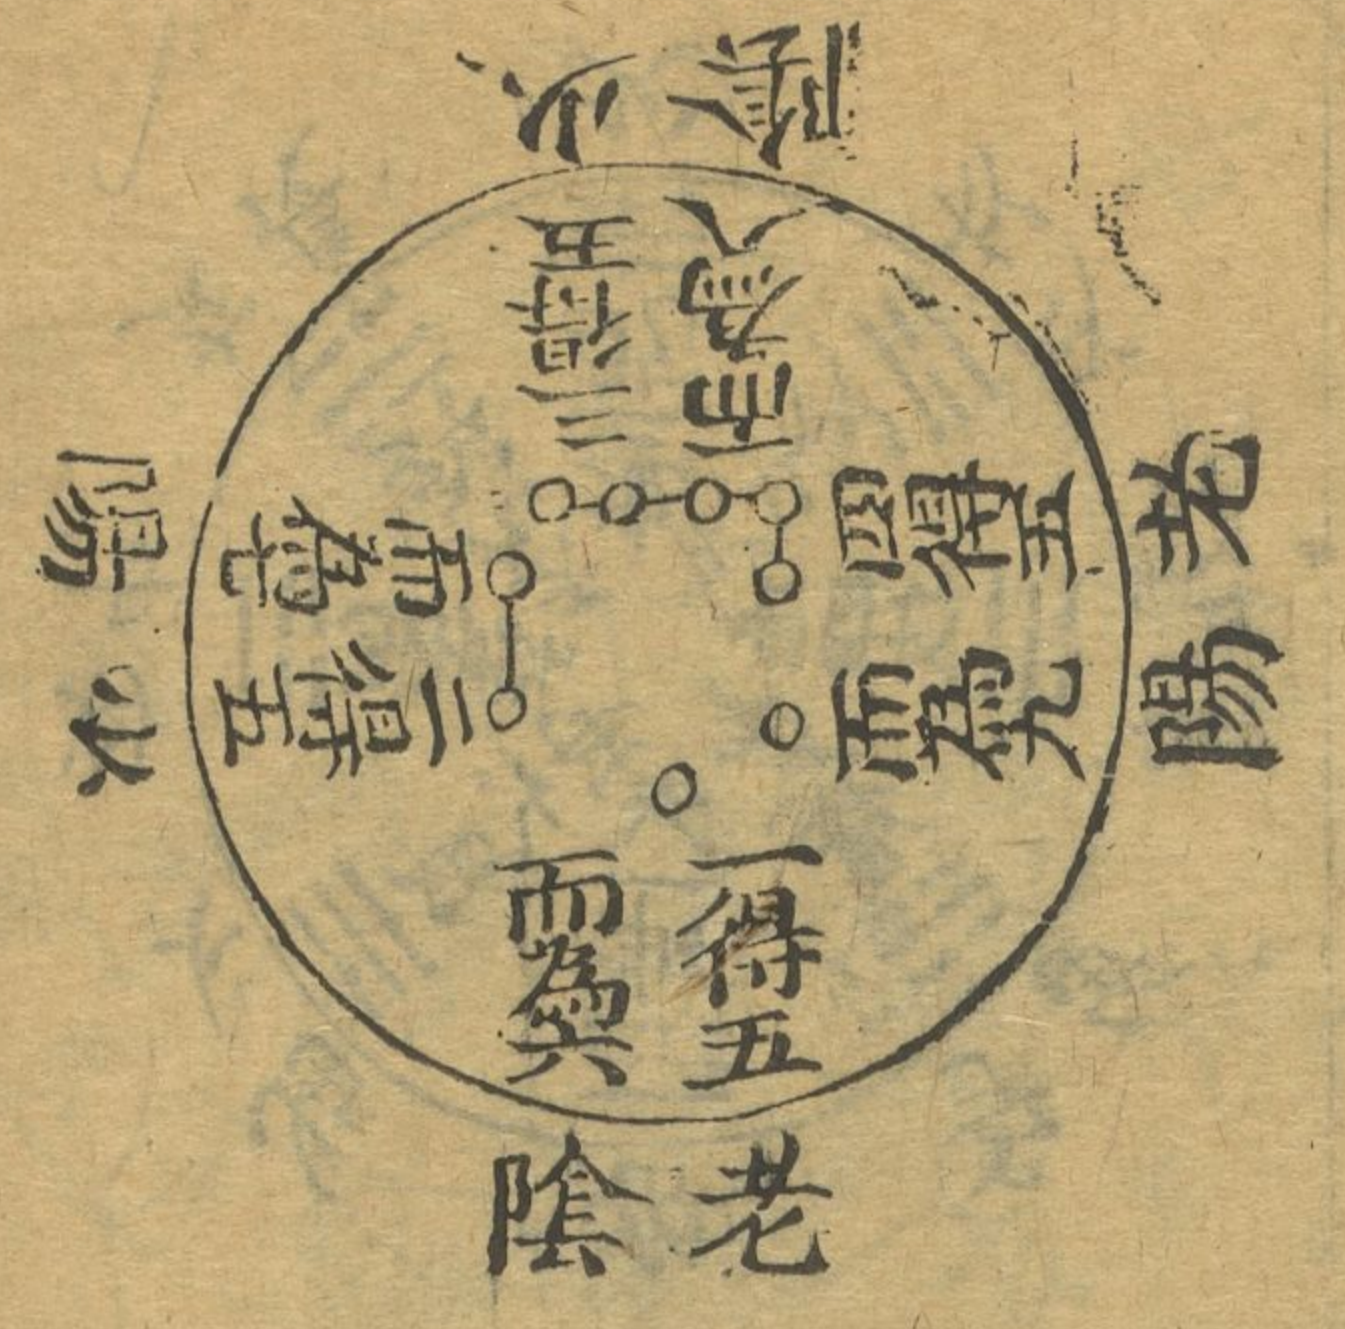 少陰
三得五
而為八
老陽
四得五
而為九
少陽
二得五
而為七
一得五
而為六
老陰